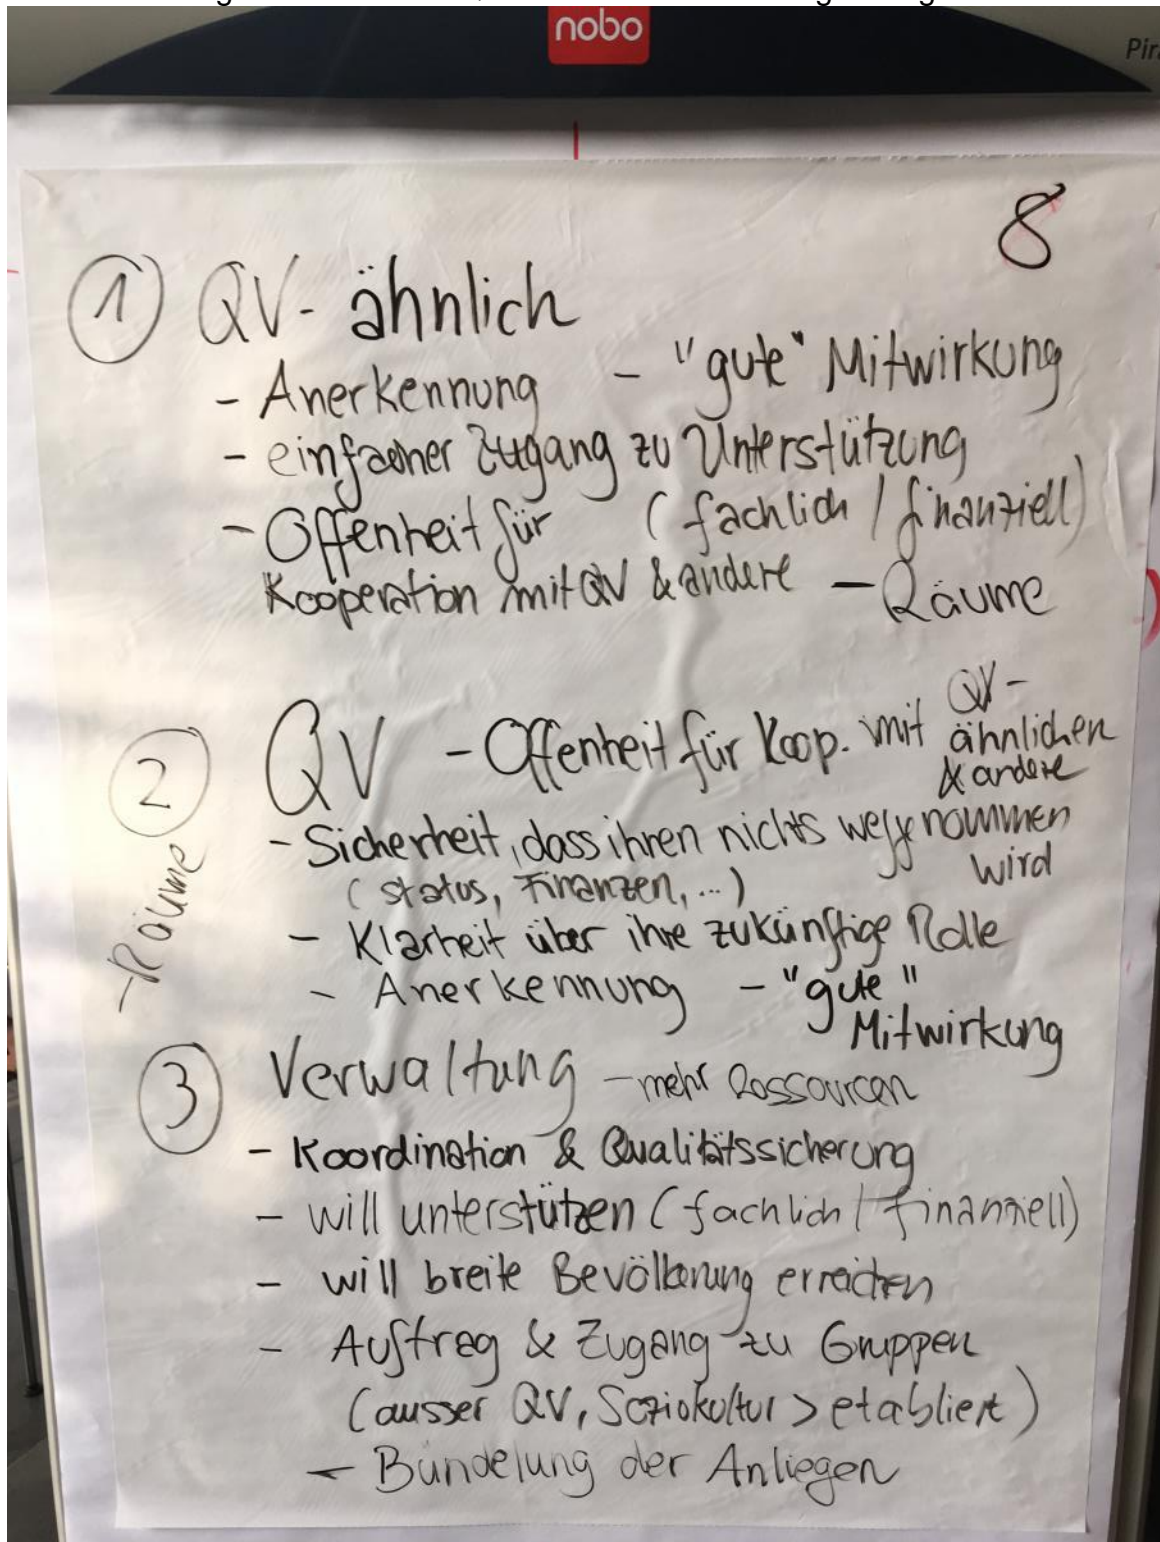 nobo
Pir
8
1 QV- ähnlich
- Anerkennung - "gute" Mitwirkung
- einfacher Zugang zu Unterstützung
(fachlich / finanziell)
- Offenheit für
Kooperation mit QV & andere - Räume
2 QV - Offenheit für Koop. mit QV-
ähnlichen
& andere
- Sicherheit, dass ihren nichts weggenommen
wird
(status, Finanzen, ...)
- Klarheit über ihre zukünftige Rolle
- Anerkennung - "gute"
Mitwirkung
- Räume
3 Verwaltung - mehr Ressourcen
- Koordination & Qualitätssicherung
- will unterstützen (fachlich / finanziell)
- will breite Bevölkerung erreichen
- Auftrag & Zugang zu Gruppen
(ausser QV, Soziokultur > etabliert)
- Bündelung der Anliegen